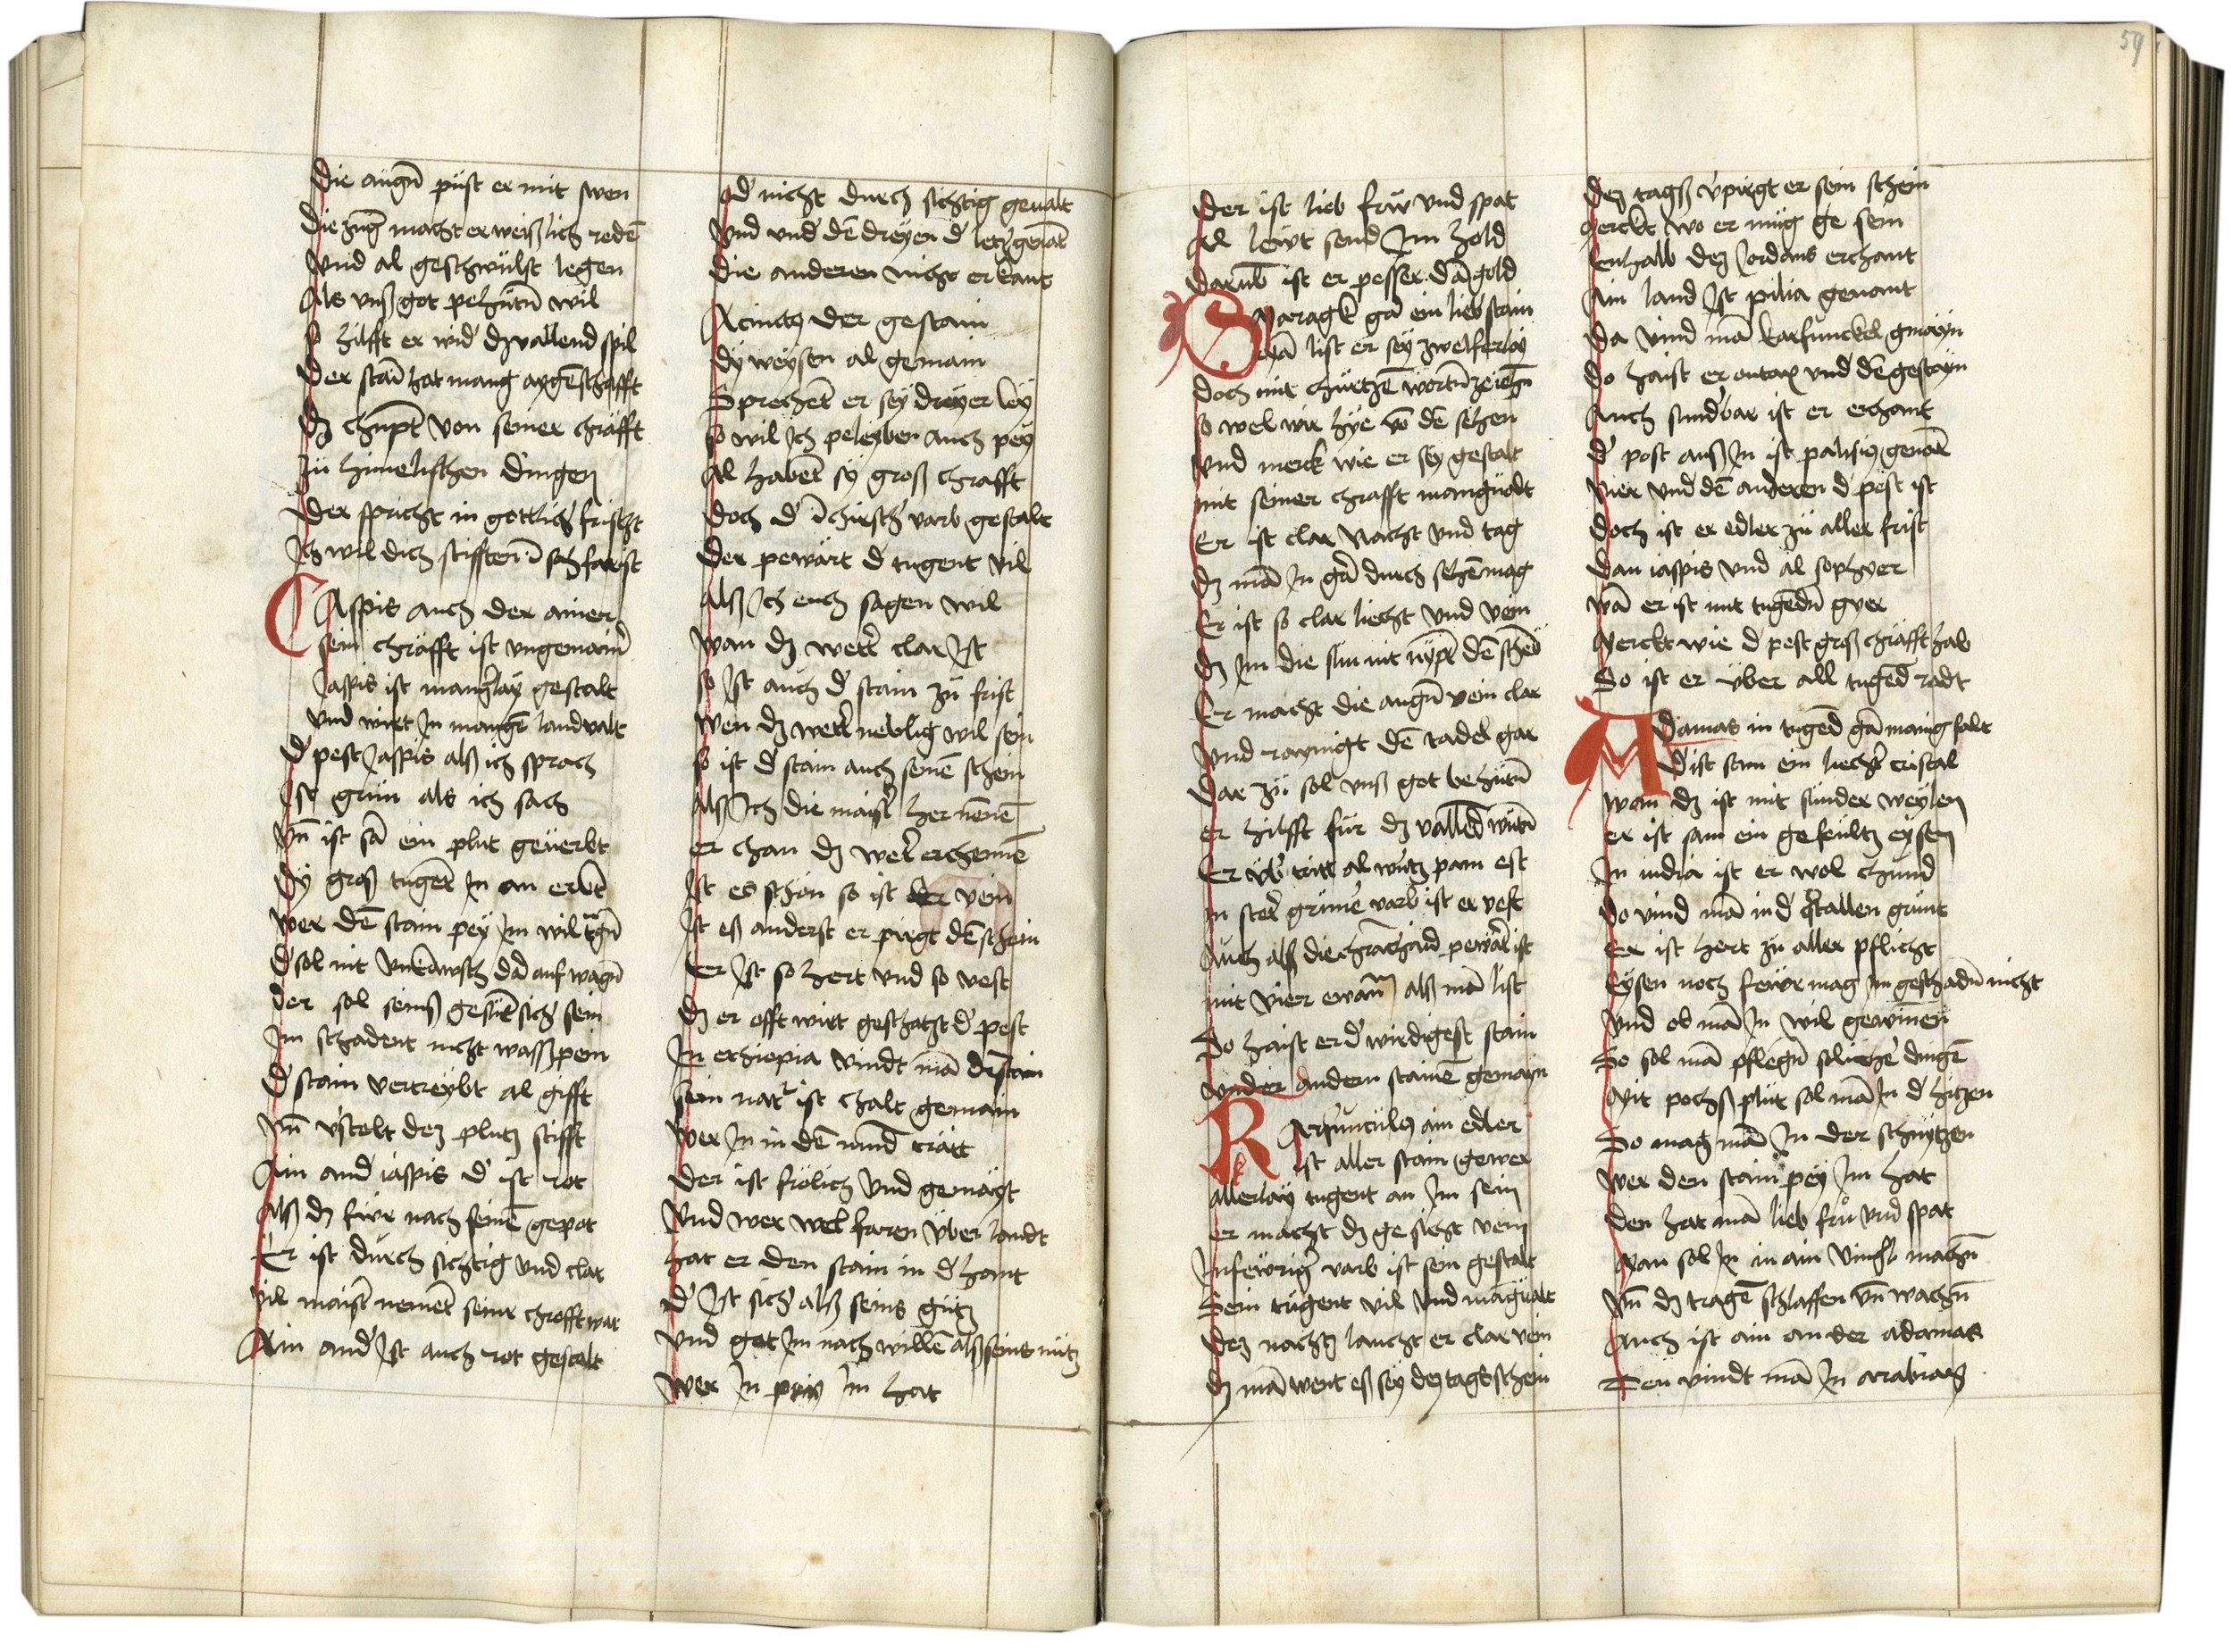 Die augn̄ püst er mit swen
Die zunḡ macht er weißlich redē
Vnd al geschwulst legen
Als vnß got pehütn̄ wil
so hilfft er wid' dz vallend spil
Der stain hat mang aygēschafft
Dz chupt von seiner chräfft
Zu himelischen dingen
Der spricht in gottlich' frischt
Ich wil dich stifften ī
Aspis auch der ainer
sein chräfft ist vngemain'
Jaspis ist mang'lay gestalt
vnd wirt In mangē land valt
D' pest Jaspis alß ich sprach
Ist grün als ich sach
Vn̄ ist sā ein plut geuerbt
Dy groß tugēt In an erbt
Wer dē stain pey Im wil trgn̄
D' sol nit vnkäwsch dā auf wagn̄
Der sol seinß gesūt sich' sein
Im schadent nicht waßpein
D' stain vertreybt al gifft
Vn̄ v'stelt dez plutz stifft
Ain and' iaspis d' ist rot
Alß dz fiwr nach seinē gepot
Er ist durch sichtig vnd clar
Vil maist' nement seine chrofft war
Ain and' Ist auch rot gestalt
D' nicht durch sichtig geualt
Vnd vnd' dē dreyen d' letz genāt
Die anderen nicht erkant
Acinctz der gestain
Dy weysen al gemain
Sprechēt er sey dreyer ley
so wil Ich peleyben auch pey
Al habēt sy groß chrafft
Doch d' varb gestalt
Der pewärt d' tugent vil
Alß Ich euch sagen wil
Wan dz wett' clar Ist
so Ist auch d' stain zu frist
Wen dz wett' neblig wil sein
so ist d' stain auch seinē schein
Alß Ich die maist' her nēnē
er chan dz wet' erchennē
Ist es schön so ist der vein
Ist eß anderst er pirgt dē schein
Er Ist so hert vnd so vest
Dz er offt wirt geschatzt d' pest
In ethiopia vindt mā dē stain
Sein nat' ist chalt gemain
Wer In in dē mūd trätt
Der ist frölich vnd gemäyt
Vnd wer wel faren über landt
Hat er den stain in d' hant
D' Ist sich' alß seins gutz
Vnd get Im nach willē alß seins nütz
Wer In pey Im hat
Der ist lieb frw vnd spat
Al lewt send Im hold
Darūb ist er pesser dā gold
Maragk gā ein lieb stain
mā list er sey zwelferlay
Doch mit churtzē wortn̄ zeichn̄
so wel wir hye vō dē sehen
Vnd merck wie er sey gestalt
mit seiner chrafft mangualt
Er ist clar nacht vnd tag
Dz mā In gā durch sehē mag
Er ist so clar liecht vnd vein
Dz Im die sun nit nÿpt dē schein
Er macht die augn̄ vein clar
Vnd raynigt dē tadel gar
Dar zü sol vnß got behütn̄
er hilfft für dz vallēd wütn̄
Er vb' tritt al wurtz pam est
In stet' grüne varb ist er vest
Auch alß die pewärt ist
mit vier alß mā list
So haist er d' wirdigest stain
vnder andern stainē gemayn
Arfunculꝰ ain edler
ist aller stain gewer
allerlay tugent an Im sein
er macht dz gesicht vein
In fewrig' varb ist sein gestalt
Sein tugent vil vnd mangualt
Dez nachtz laucht er clar vein
Dz mā went eß sey dez tagsschein
Dez tagß v'pirgt er sein schein
Merckt wo er müg ge sein
Enhalb dez Jordans erchant
Ain land Ist pilia genant
Da vind mā karfunckel gmayn
Do haist er vnd' dē gestayn
Auch sundbar ist er erchant
D' post auß In ist palisiꝰ genāt
Vier vnd' dē anderen d' pest ist
Doch ist er edler zu aller frist
Dan iaspis vnd al saphyer
Wā er ist mit tugēdn̄ gver
Merckt wie d' pest groß chräfft hab
So ist er über all tugēd radt
Adamas in tugēd gā manig falt
D' ist sam ein liecht' cristal
Wan dz ist mit sunder weylen
er ist sam ein gefeultz eysen
In india ist er wol chund
Do vind mā in d' cristallen grunt
Er ist hert zu aller pflicht
Eysen noch fewr mag Im geschadn̄ nicht
Vnd ob mā In wil gewinnen
So sol mā pflegn̄ solicher dingē
Mit pochß plut sol mā In d' hitzen
So mag mā In der schnytzen
Wer den stain pey Im hat
Den hat mā lieb frü vnd spat
Man sol In in ain vingl' machn̄
Vn̄ dz tragē schlaffen vn̄ wachn̄
Auch ist ain ander adamas
Den vindt mā In arabiaz
59